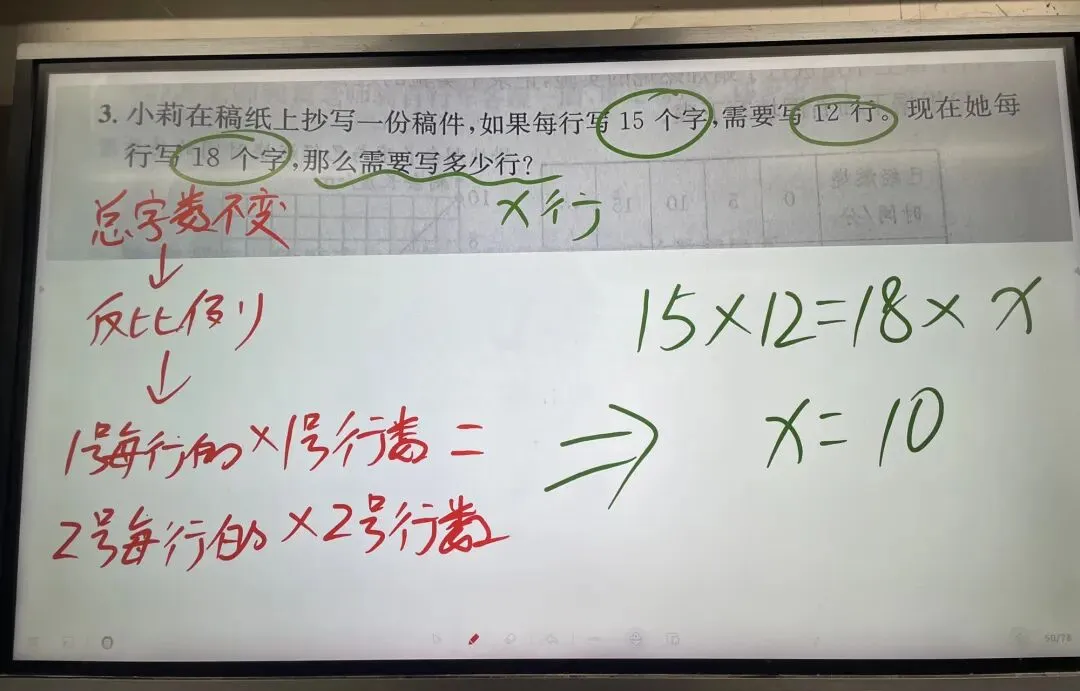 3. 小莉在稿纸上抄写一份稿件,如果每行写 15 个字,需要写 12 行。现在她每
行写 18 个字,那么需要写多少行?
x 行
总字数不变
↓
反比例
↓
1号每行的×1号行数 =
2号每行的×2号行数
⇒
15×12=18×x
x=10
50/78